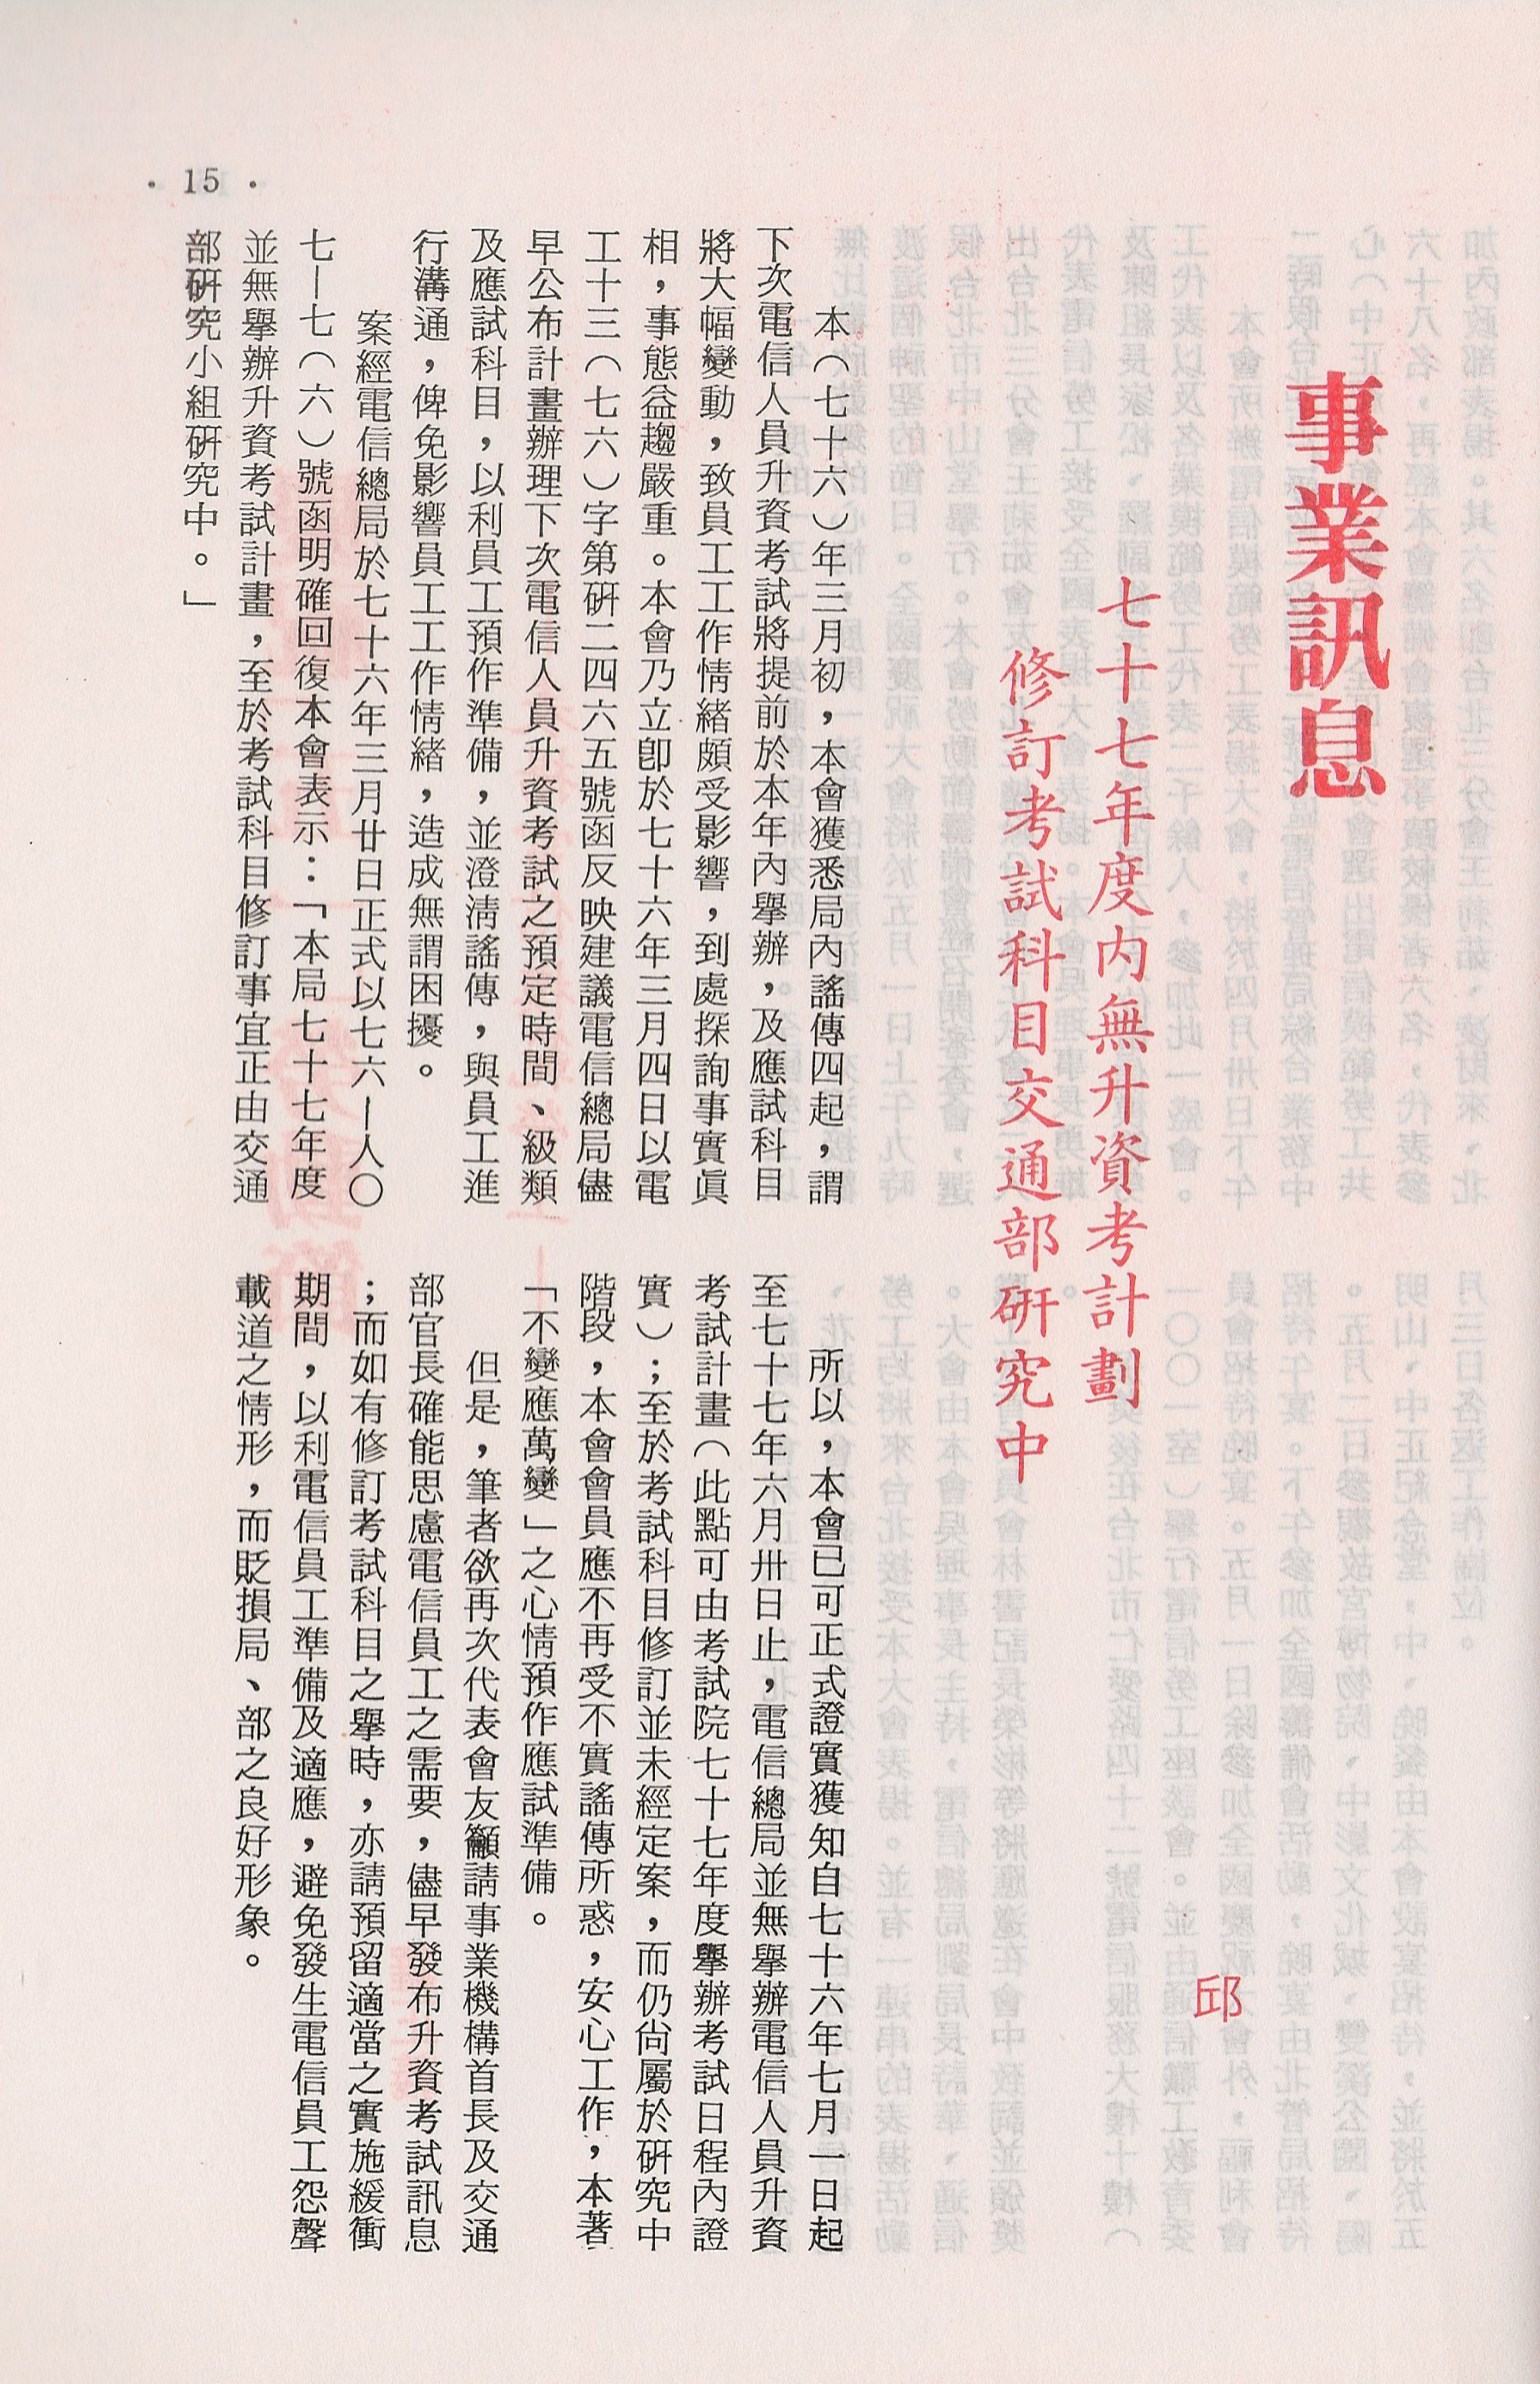 事業訊息
七十七年度內無升資考計劃
修訂考試科目交通部研究中
邱
本（七十六）年三月初，本會獲悉局內謠傳四起，謂
下次電信人員升資考試將提前於本年內舉辦，及應試科目
將大幅變動，致員工工作情緒頗受影響，到處探詢事實眞
相，事態益趨嚴重。本會乃立卽於七十六年三月四日以電
工十三（七六）字第研二四六五號函反映建議電信總局儘
早公布計畫辦理下次電信人員升資考試之預定時間、級類
及應試科目，以利員工預作準備，並澄淸謠傳，與員工進
行溝通，俾免影響員工工作情緒，造成無謂困擾。
案經電信總局於七十六年三月廿日正式以七六—人〇
七—七（六）號函明確回復本會表示：「本局七十七年度
並無舉辦升資考試計畫，至於考試科目修訂事宜正由交通
部研究小組研究中。」
所以，本會已可正式證實獲知自七十六年七月一日起
至七十七年六月卅日止，電信總局並無舉辦電信人員升資
考試計畫（此點可由考試院七十七年度舉辦考試日程內證
實）；至於考試科目修訂並未經定案，而仍尙屬於研究中
階段，本會會員應不再受不實謠傳所惑，安心工作，本著
「不變應萬變」之心情預作應試準備。
但是，筆者欲再次代表會友籲請事業機構首長及交通
部官長確能思慮電信員工之需要，儘早發布升資考試訊息
；而如有修訂考試科目之舉時，亦請預留適當之實施緩衝
期間，以利電信員工準備及適應，避免發生電信員工怨聲
載道之情形，而貶損局、部之良好形象。
· 15 ·